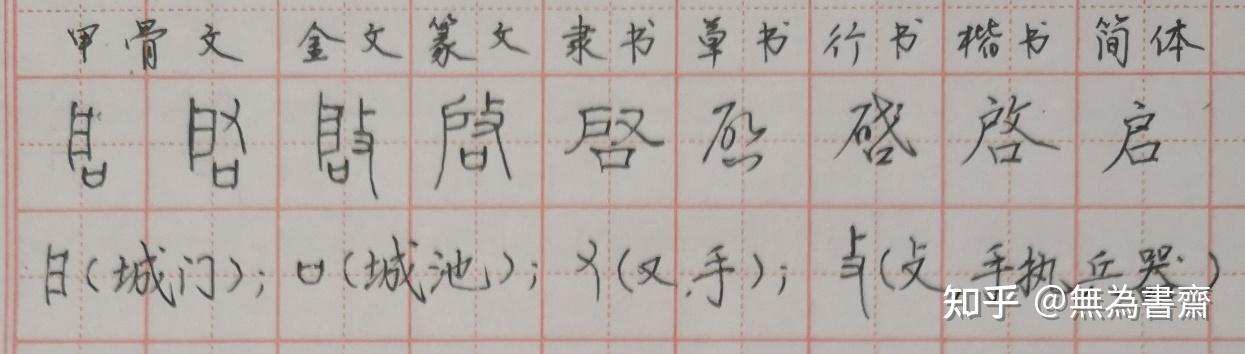 甲骨文 金文 篆文 隶书 草书 行书 楷书 简体
启 啓 啓 啓 啓 启 啓 啓 启
(城门); 口(城池); (又,手); (攴,手执兵器)
知乎 @無為書齋